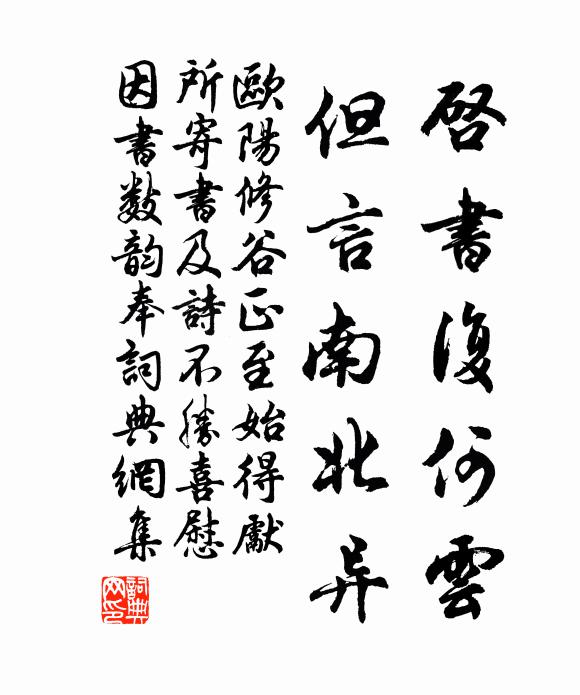 啓書復何雲
但言南北异
歐陽修谷正至始得獻
所寄書及詩不勝喜慰
因書數韵奉詞典網集
詞典
网印